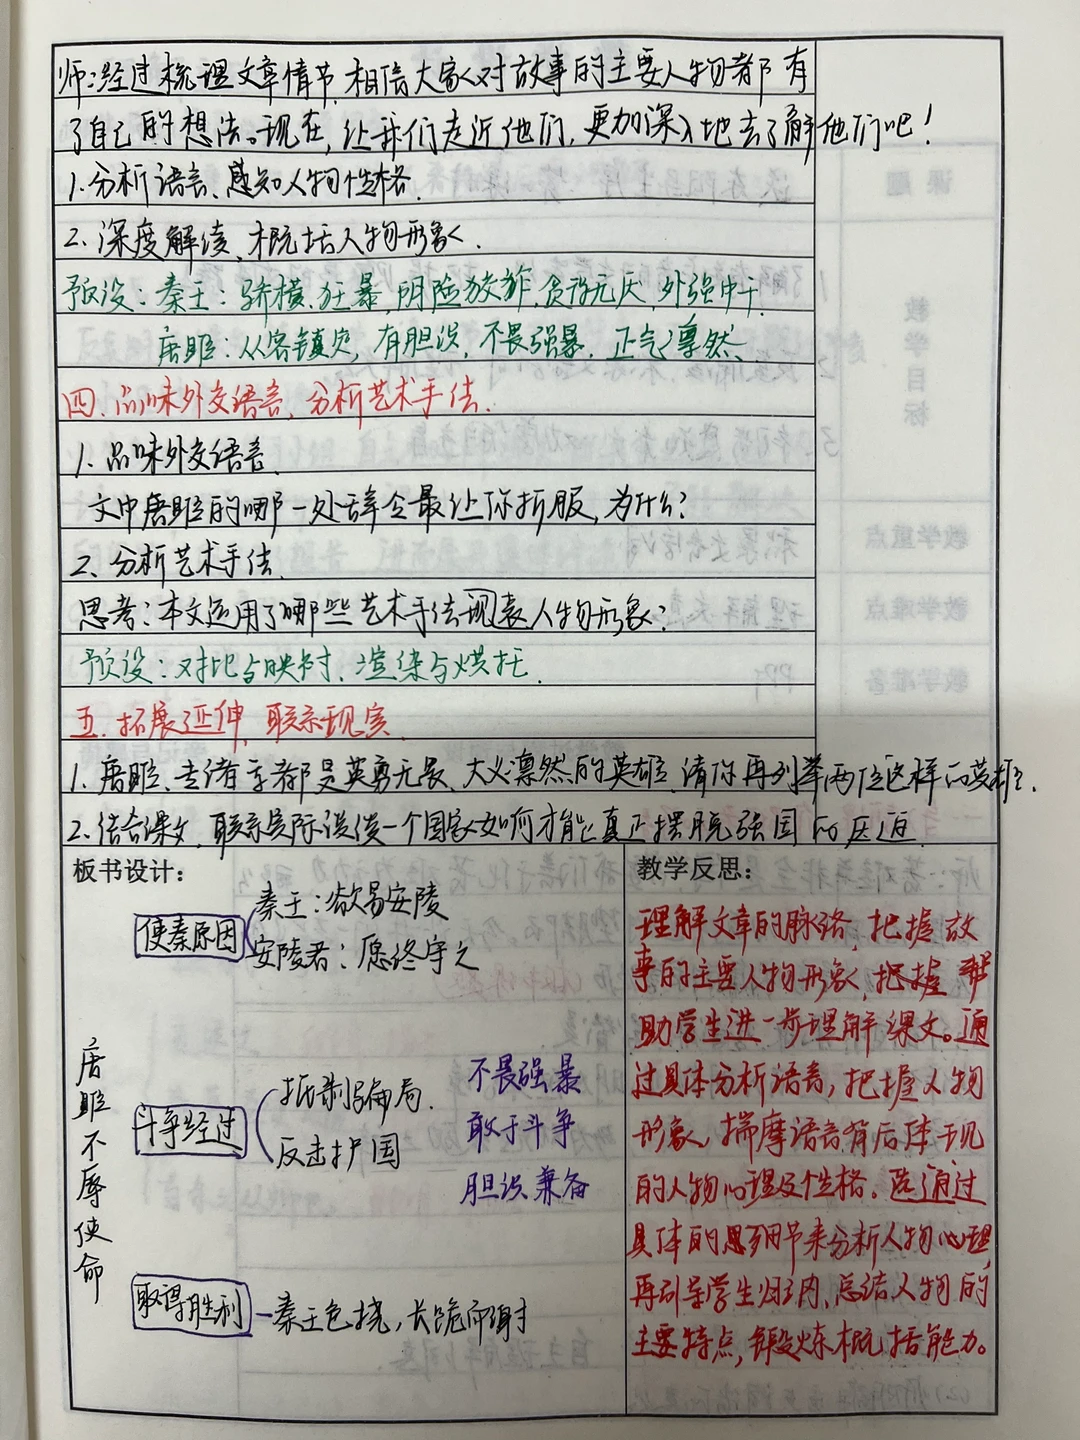 师：经过梳理文章情节，相信大家对故事的主要人物都有
了自己的想法。现在，让我们走近他们，更加深入地去了解他们吧！
1.分析语言、感知人物性格.
2.深度解读、概括人物形象.
预设：秦王：骄横、狂暴、阴险狡诈、贪婪无厌、外强中干.
唐雎：从容镇定，有胆识，不畏强暴、正气凛然、
四、品味外交语言、分析艺术手法.
1.品味外交语言.
文中唐雎的哪一处辞令最让你折服，为什么？
2.分析艺术手法.
思考：本文运用了哪些艺术手法现表人物形象？
预设：对比与映衬、渲染与烘托.
五.拓展延伸、联系现实.
1.唐雎、专诸等都是英勇无畏、大义凛然的英雄，请你再列举两位这样的英雄.
2.结合课文，联系实际谈谈一个国家如何才能真正摆脱强国的压迫.
板书设计：
唐雎不辱使命
使秦原因
秦王：欲易安陵
安陵君：愿终守之
斗争经过
抵制骗局.
反击护国
不畏强暴
敢于斗争
胆识兼备
取得胜利
秦王色挠，长跪而谢
教学反思：
理解文章的脉络，把握故
事的主要人物形象，把握帮
助学生进一步理解课文。通
过具体分析语言，把握人物
形象，揣摩语言背后体现
的人物心理及性格。通过
具体的细节来分析人物心理，
再引导学生归纳、总结人物的
主要特点，锻炼概括能力。